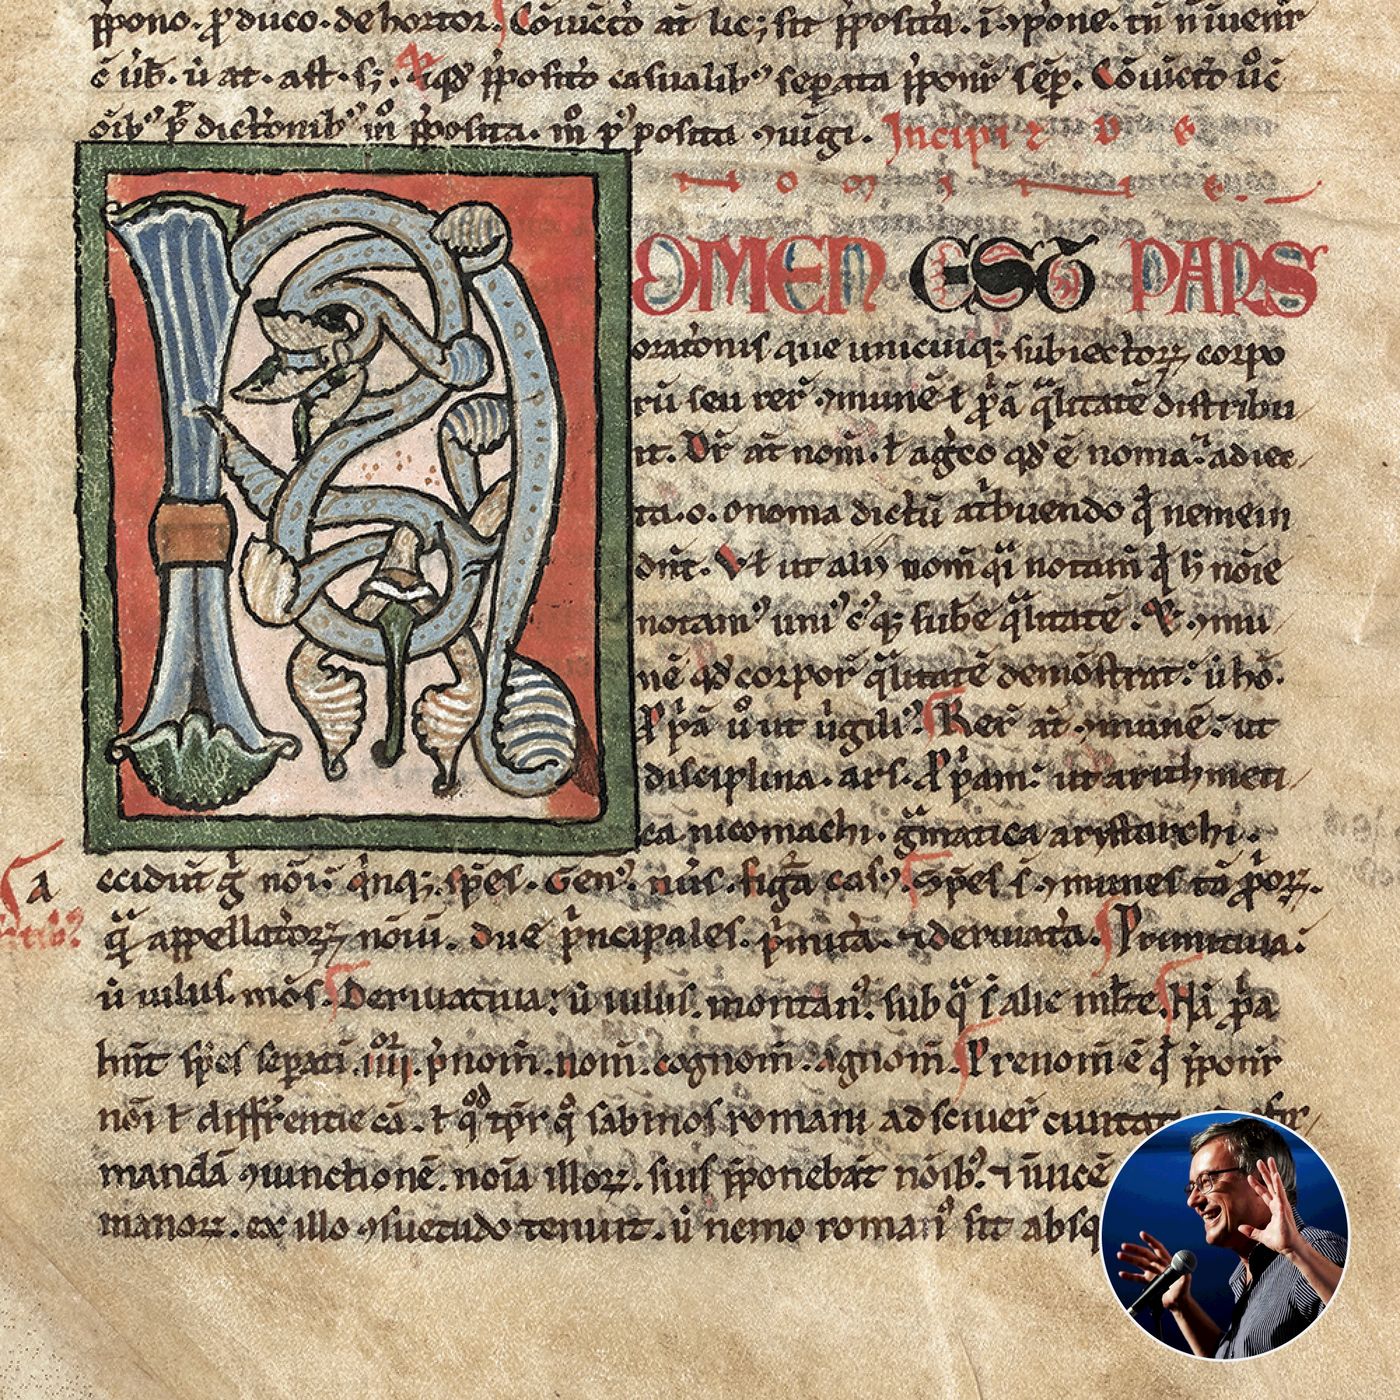 p̄pono. ꝓduco. dehortor. Cōiūctō at̄ lic; sit p̄posita. ī ꝯpone. tn̄ n̄ iuenir
ē ūb. ū at. ast. s;. p̄posito casualib⁹ seꝑata p̄ponr̄ sēꝑ. Cōiūctō ū̊
oīb⁹ dictōnib⁹ m̊ p̄posita. m̊ p⁹posita ꝯiūgi. Incipit D E
NOMEN EST PARS
oratōnis que unicuiq; subiectoꝝ corpo
rū seu rer̄ ꝯmunē ł pp̄ā q̄litatē distribu
it. Dr̄ at̄ nom̄. ł a gr̄co qd̄ ē noma: adiec
ta .o. onoma dictū at̄buendo q̄ nemein
dn̄t. Vł ut alii nom̄ q̄i notam̄ q̄ h̄ noīe
notam⁹ uni⁹cⁱ⁹q; subē q̄litatē. Et ꝯmu
nē qd̄ corporꝝ q̄litatē demōstrat: ū hō.
pp̄ā ū̊ ut ūgili⁹. Rerꝝ at̄ ꝯmunē. ut
disciplina. ars. pp̄am: ut arithmeti
ca nicomachi. gͣmatica arystarchi.
A
ccidūt gͥ nōi: qͥnq;. sp̄es. Gen⁹. nūs. figᷓa cas⁹. Sp̄es s̄ ꝯmunes tā ꝓpꝝ.
qͣ appellatoꝝ nōiū. due pͥncipales. pͥmitā. ⁊ deriuatā. Primitiua:
ū iulus. mōs. Deriuatiua: ū iulius. montan⁹. sub qͣ s̄ alie mͧlte. Hā pp̄a
hn̄t sp̄es seꝑati .iiiiᵒʳ. p̄nom̄. nom̄. cognom̄. agnom̄. Prenom̄ ē qͩ p̄ponr̄
nōi ł diffr̄entie cā. ł qͦd tp̄r qͦ sabinos romani adsciuer̄ ciuitati
mandā ꝯiunctionē. noīa illoꝝ. suis p̄ponebāt nōīb⁹. ⁊ īuicē
manoꝝ. ex illo ꝯsuetudo tenuit. ū nemo roman⁹ sit absq